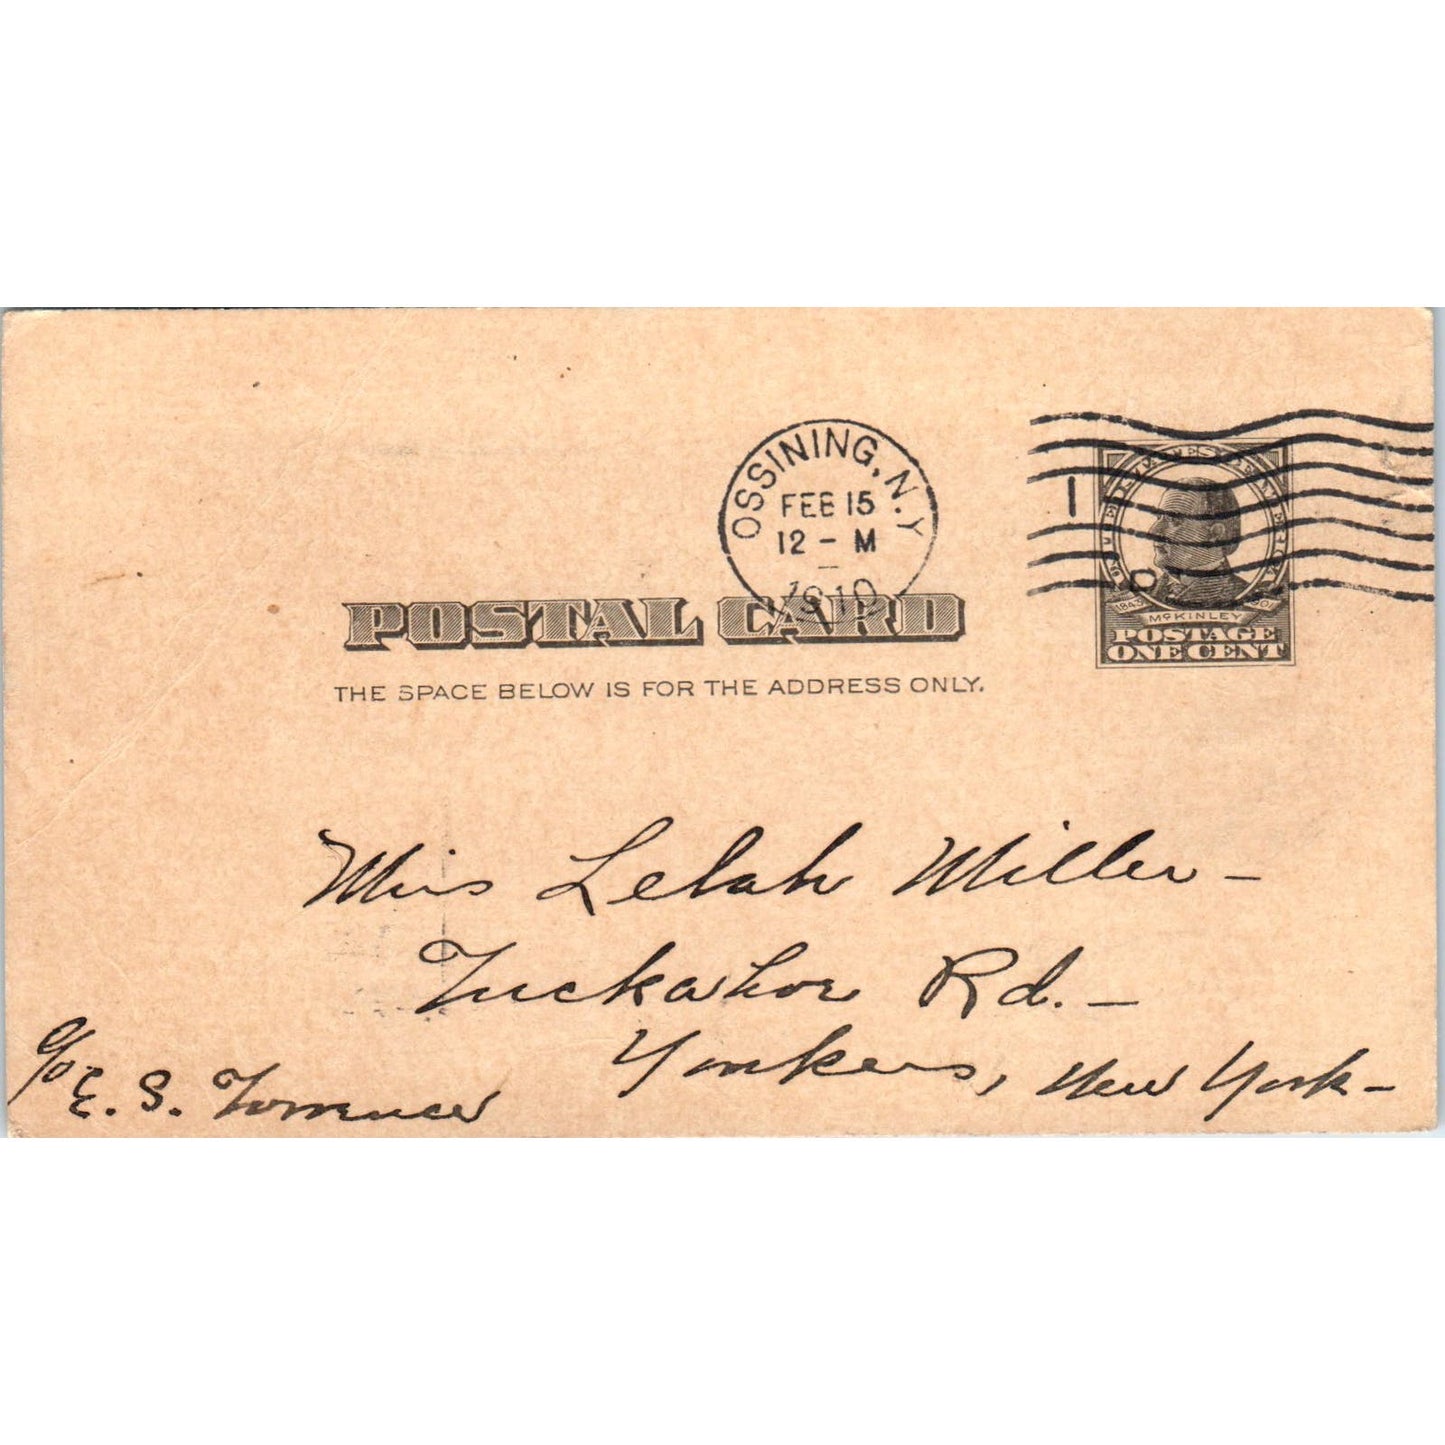 OSSINING, N.Y.
FEB 15
12 - M
1910
1
D
SERIES OF
1843
McKINLEY
1901
POSTAGE
ONE CENT
POSTAL CARD
THE SPACE BELOW IS FOR THE ADDRESS ONLY.
Miss Lelah Miller -
Tuckahoe Rd. -
Yonkers, New York -
c/o E. S. Torrence